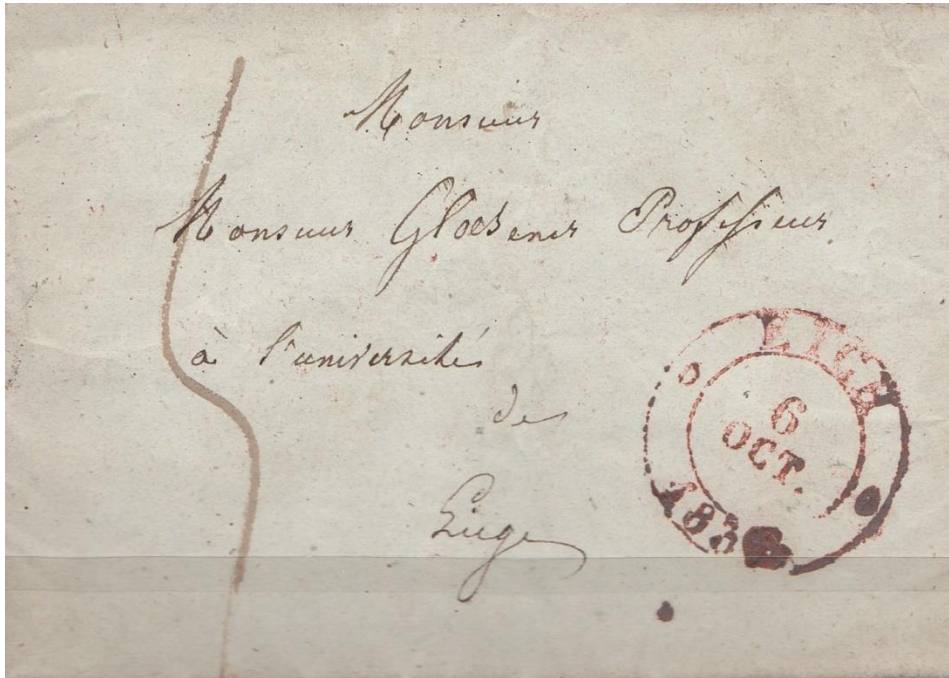 Monsieur
Monsieur Gloesener Professeur
à l'université
de
Liége
6
OCT.